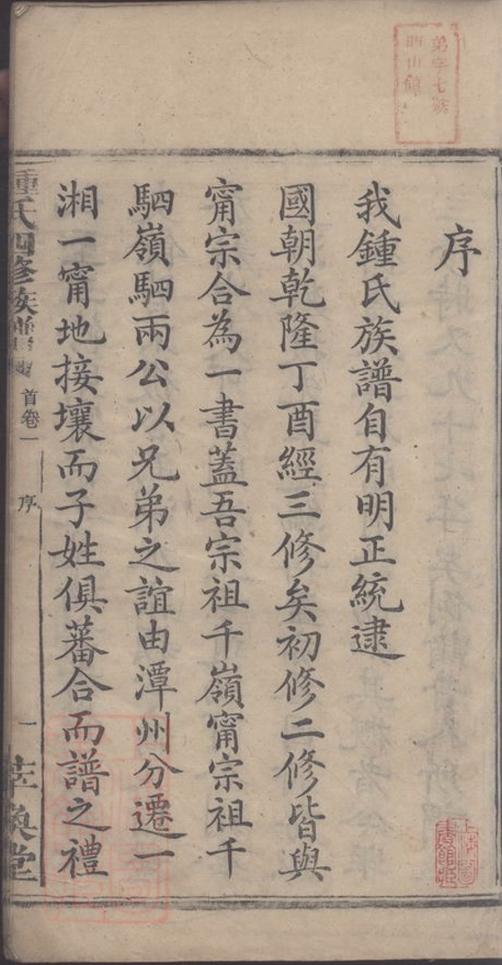 序
我鍾氏族譜自有明正統逮
國朝乾隆丁酉經三修矣初修二修皆與
甯宗合為一書蓋吾宗祖千嶺甯宗祖千
駟嶺駟兩公以兄弟之誼由潭州分遷一
湘一甯地接壤而子姓俱蕃合而譜之禮
鍾氏四修族譜
首卷一
序
一
萃渙堂